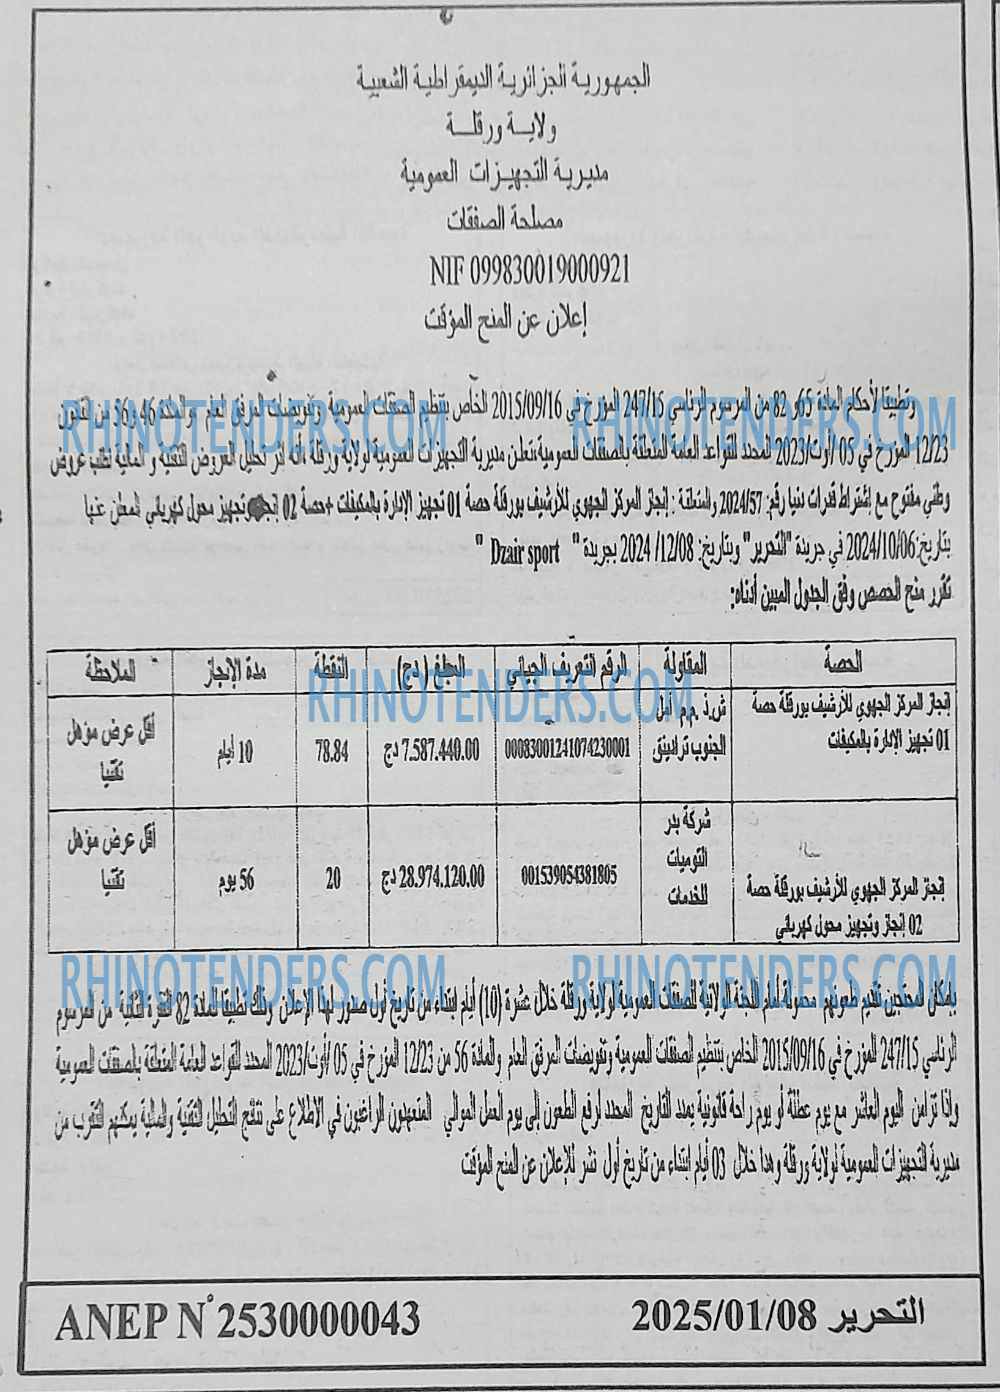 الجمهورية الجزائرية الديمقراطية الشعبية
ولاية ورقلة
مديرية التجهيزات العمومية
مصلحة الصفقات
NIF 099830019000921
إعلان عن المنح المؤقت
وتطبيقا لأحكام المادة 65و 82 من المرسوم الرئاسي 247/15 المؤرخ في 2015/09/16 الخاص بتنظيم الصفقات العمومية وتفويضات المرفق العام والمادة 46 و56 من القانون
12/23 المؤرخ في 05 /أوت/2023 المحدد للقواعد العامة المتعلقة بالصفقات العمومية،تعلن مديرية التجهيزات العمومية لولاية ورقلة بأنه اثر تحليل العروض التقنية و المالية لطلب عروض
وطني مفتوح مع إشتراط قدرات دنيا رقم: 2024/57 والمتعلقة : إنجاز المركز الجهوي للأرشيف بورقلة حصة 01 تجهيز الإدارة بالمكيفات +حصة 02 إنجاز وتجهيز محول كهربائي المعلن عنها
بتاريخ:2024/10/06 في جريدة "التحرير" وبتاريخ: 2024 /12/08 بجريدة " Dzair sport "
تقرر منح الحصص وفق الجدول المبين أدناه:
الحصة المقاولة الرقم التعريف الجبائي المبلغ ( دج) النقطة مدة الإنجاز الملاحظة
إنجاز المركز الجهوي للأرشيف بورقلة حصة 01 تجهيز الإدارة بالمكيفات ش.ذ م.م أمل الجنوب ترادينق 00083001241074230001 7.587.440.00 دج 78.84 10 أيام أقل عرض مؤهل تقنيا
إنجاز المركز الجهوي للأرشيف بورقلة حصة 02 إنجاز وتجهيز محول كهربائي شركة بدر التوميات للخدمات 001539054381805 28.974.120.00 دج 20 56 يوم أقل عرض مؤهل تقنيا
بإمكان المحتجين تقديم طعونهم محمولة أمام اللجنة الولائية للصفقات العمومية لولاية ورقلة خلال عشرة (10) أيام ابتداء من تاريخ أول صدور لهذا الإعلان وذلك تطبيقا للمادة 82 الفقرة الثانية من المرسوم
الرئاسي 247/15 المؤرخ في 2015/09/16 الخاص بتنظيم الصفقات العمومية وتفويضات المرفق العام والمادة 56 من 12/23 المؤرخ في 05 /أوت/2023 المحدد للقواعد العامة المتعلقة بالصفقات العمومية
وإذا تزامن اليوم العاشر مع يوم عطلة أو يوم راحة قانونية يمدد التاريخ المحدد لرفع الطعون إلى يوم العمل الموالي المتعهدون الراغبون في الاطلاع على نتائج التحليل التقنية والمالية يمكنهم التقرب من
مديرية التجهيزات العمومية لولاية ورقلة وهذا خلال 03 أيام ابتداء من تاريخ أول نشر للإعلان عن المنح المؤقت
التحرير 2025/01/08
ANEP N° 2530000043
RHINOTENDERS.COM
RHINOTENDERS.COM
RHINOTENDERS.COM
RHINOTENDERS.COM
RHINOTENDERS.COM